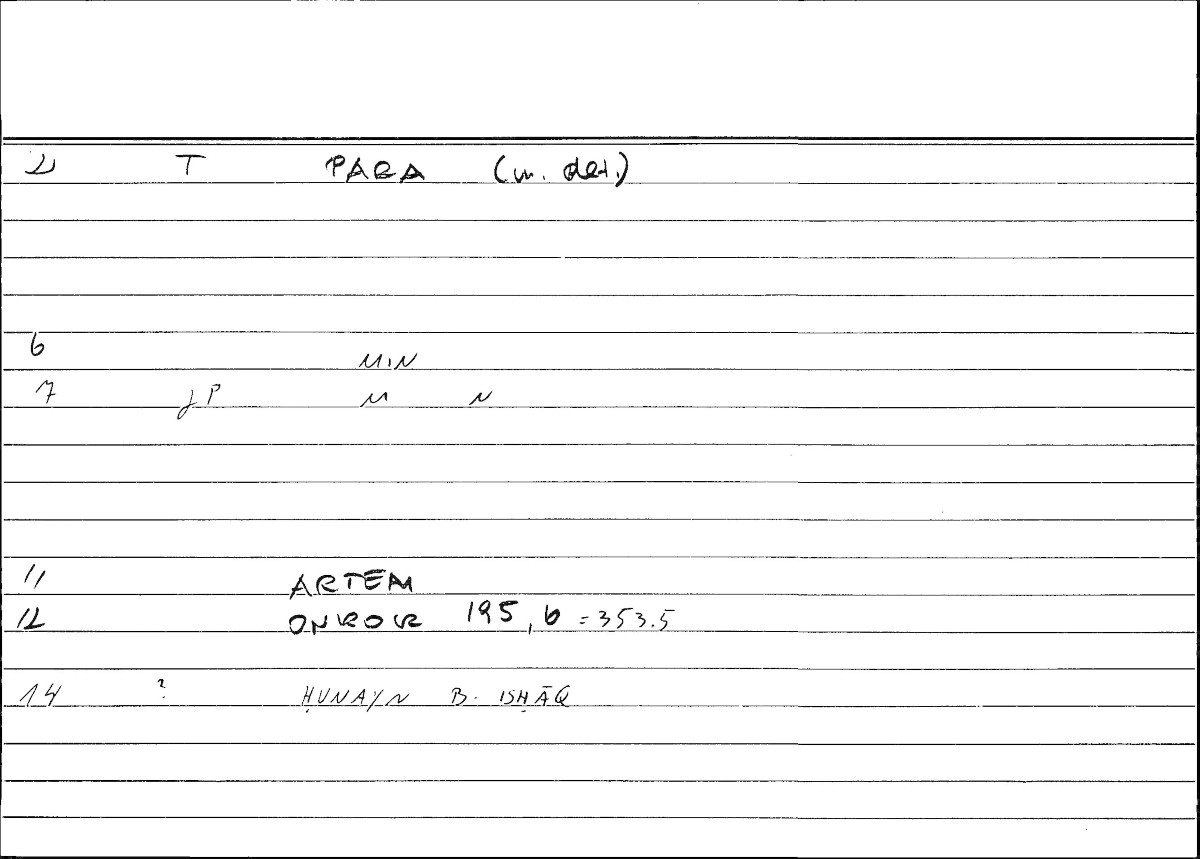 2 T PARA (m. det.)
6 MIN
7 JP M N
11 ARTEM
12 ONEIROCR 195, 6 = 353.5
14 ? ḤUNAYN B. ISḤĀQ